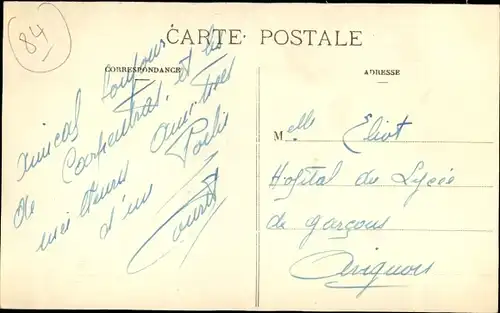 84
CARTE POSTALE
CORRESPONDANCE
ADRESSE
Amical bonjour
de Carpentras, et les
meilleurs amitiés
d'un Poilu
Melle Eliot
Hopital du Lycée
de garçons
Avignon